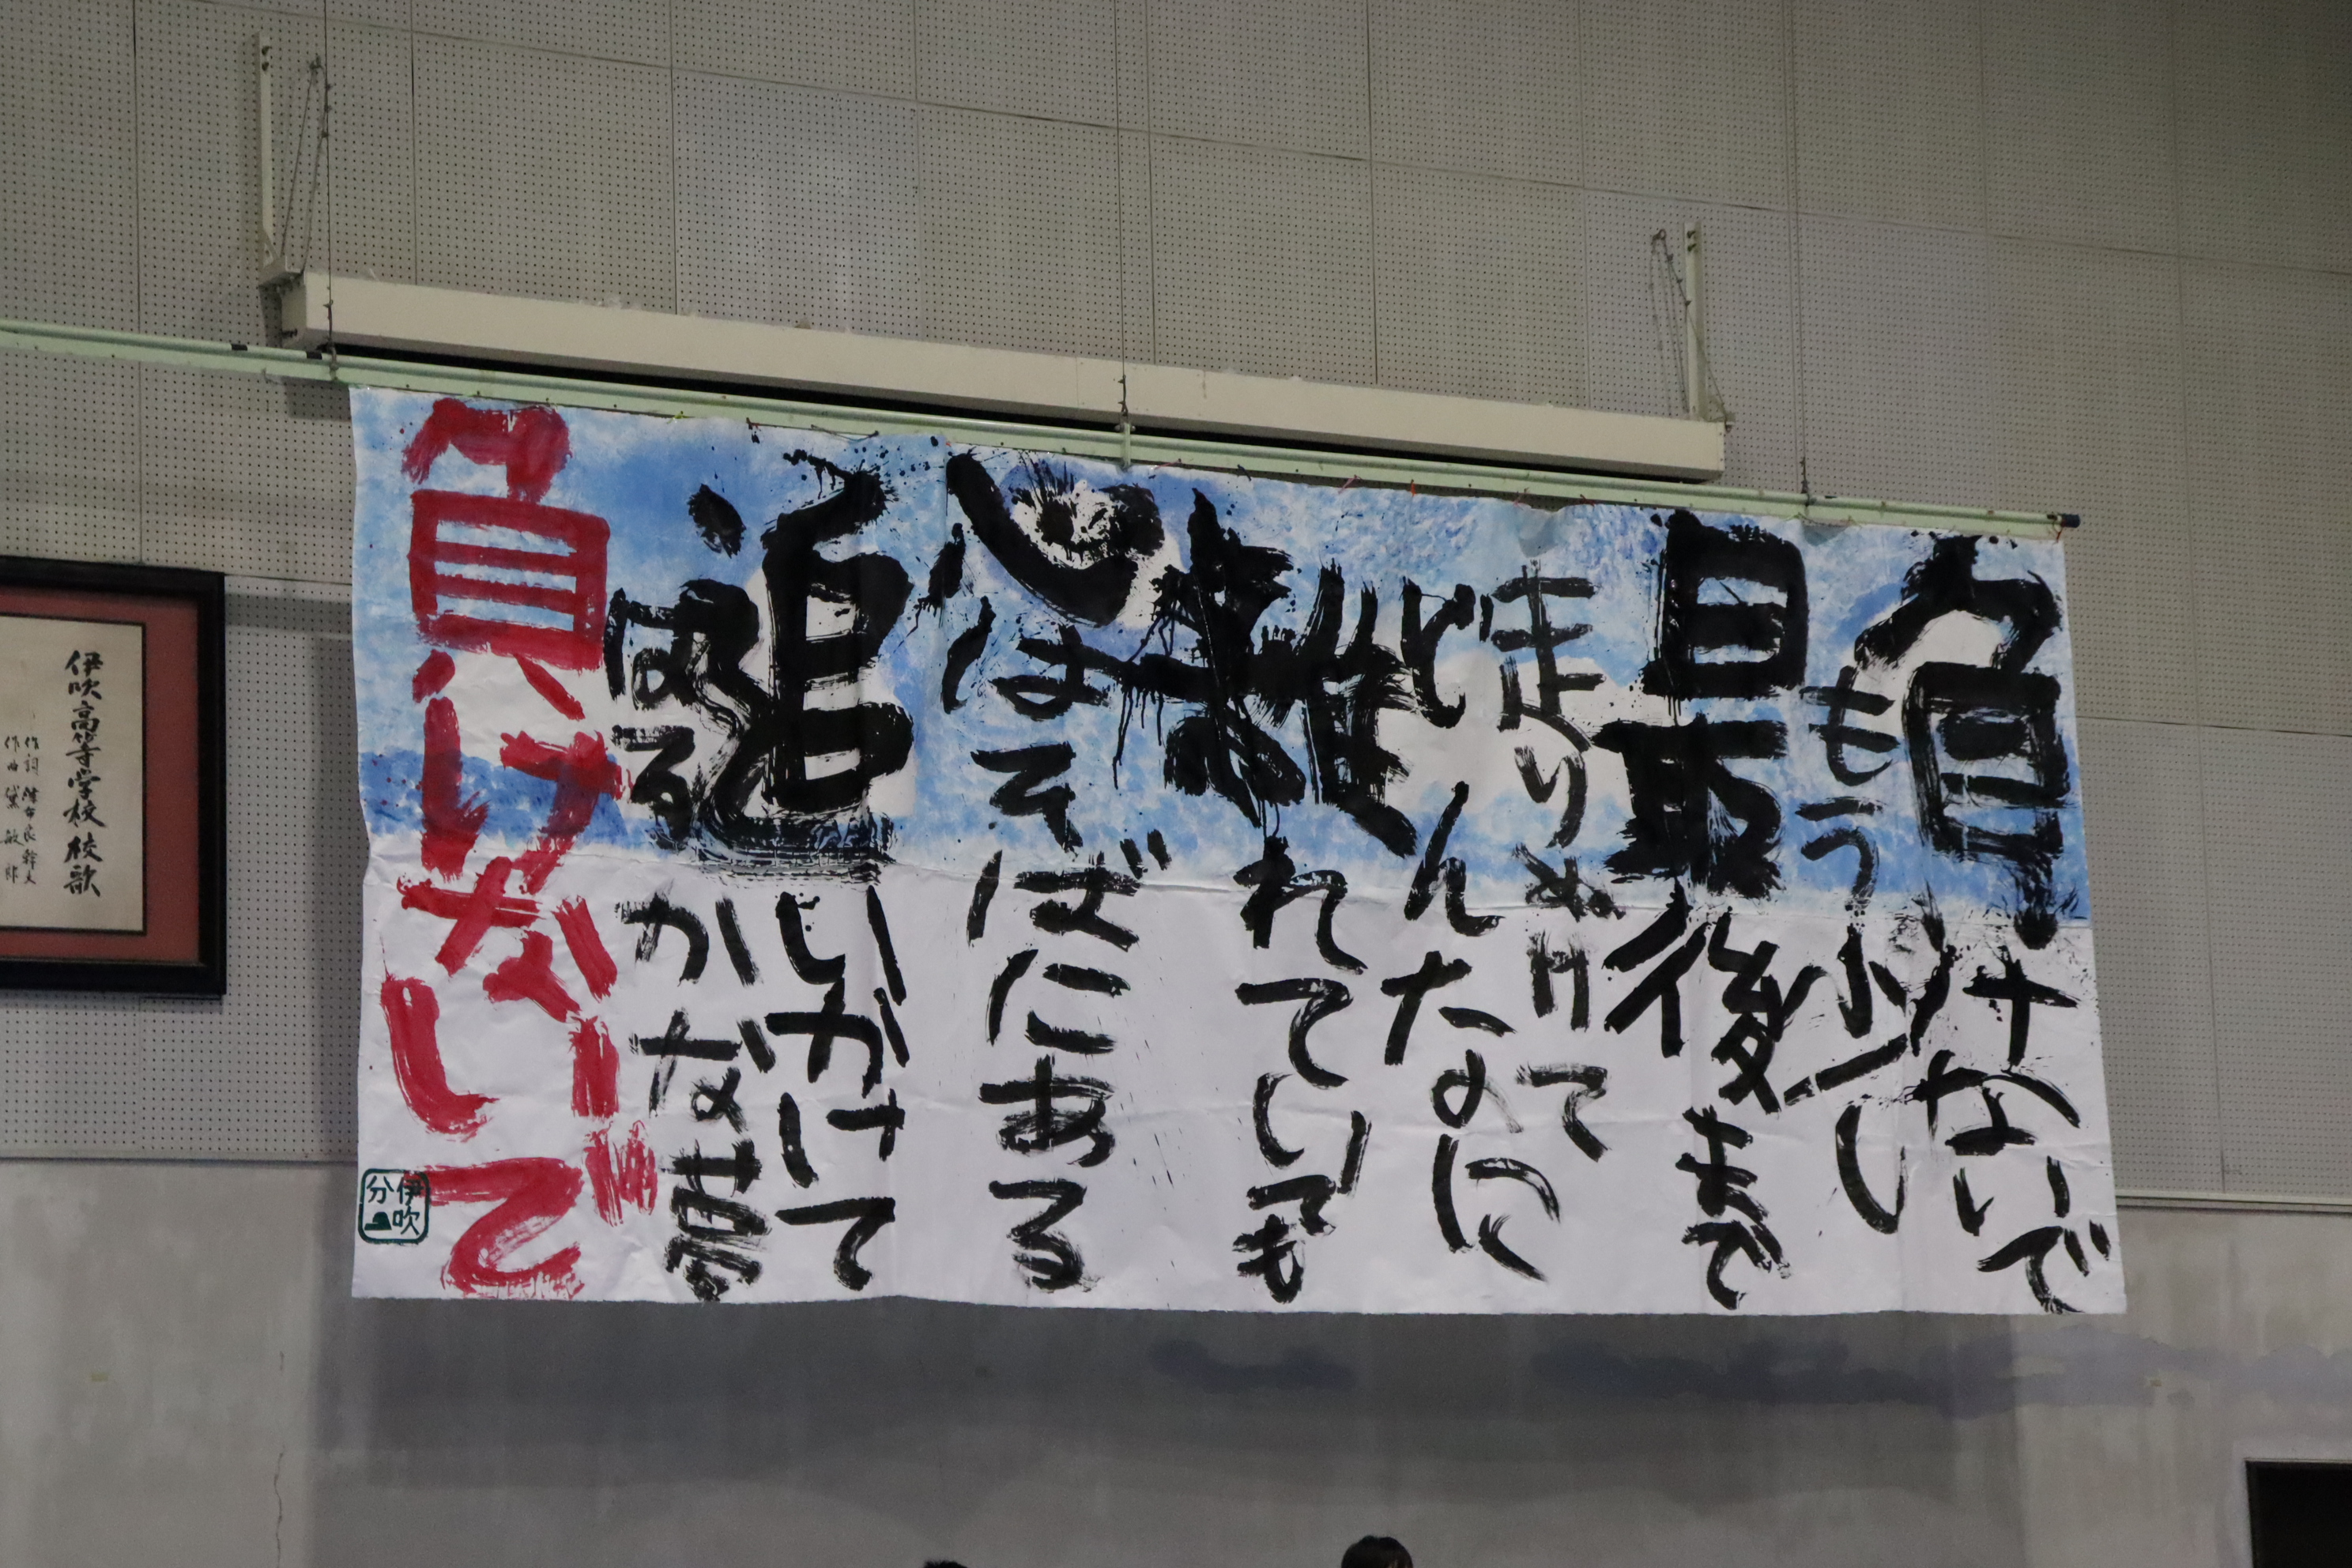 負けないで
もう少し
最後まで
走りぬけて
どんなに
離れていても
心はそばにある
追いかけて
はるかな夢
負けないで
伊吹
分
伊吹高等学校校歌